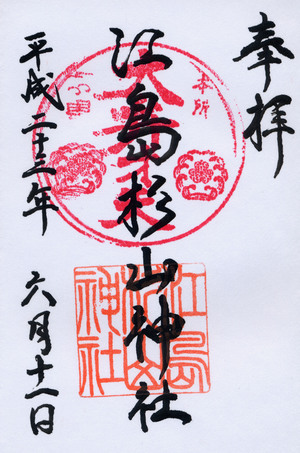 奉拝
江島杉山神社
本所
一つ目
平成二十三年
六月十一日
江島
杉山
神社